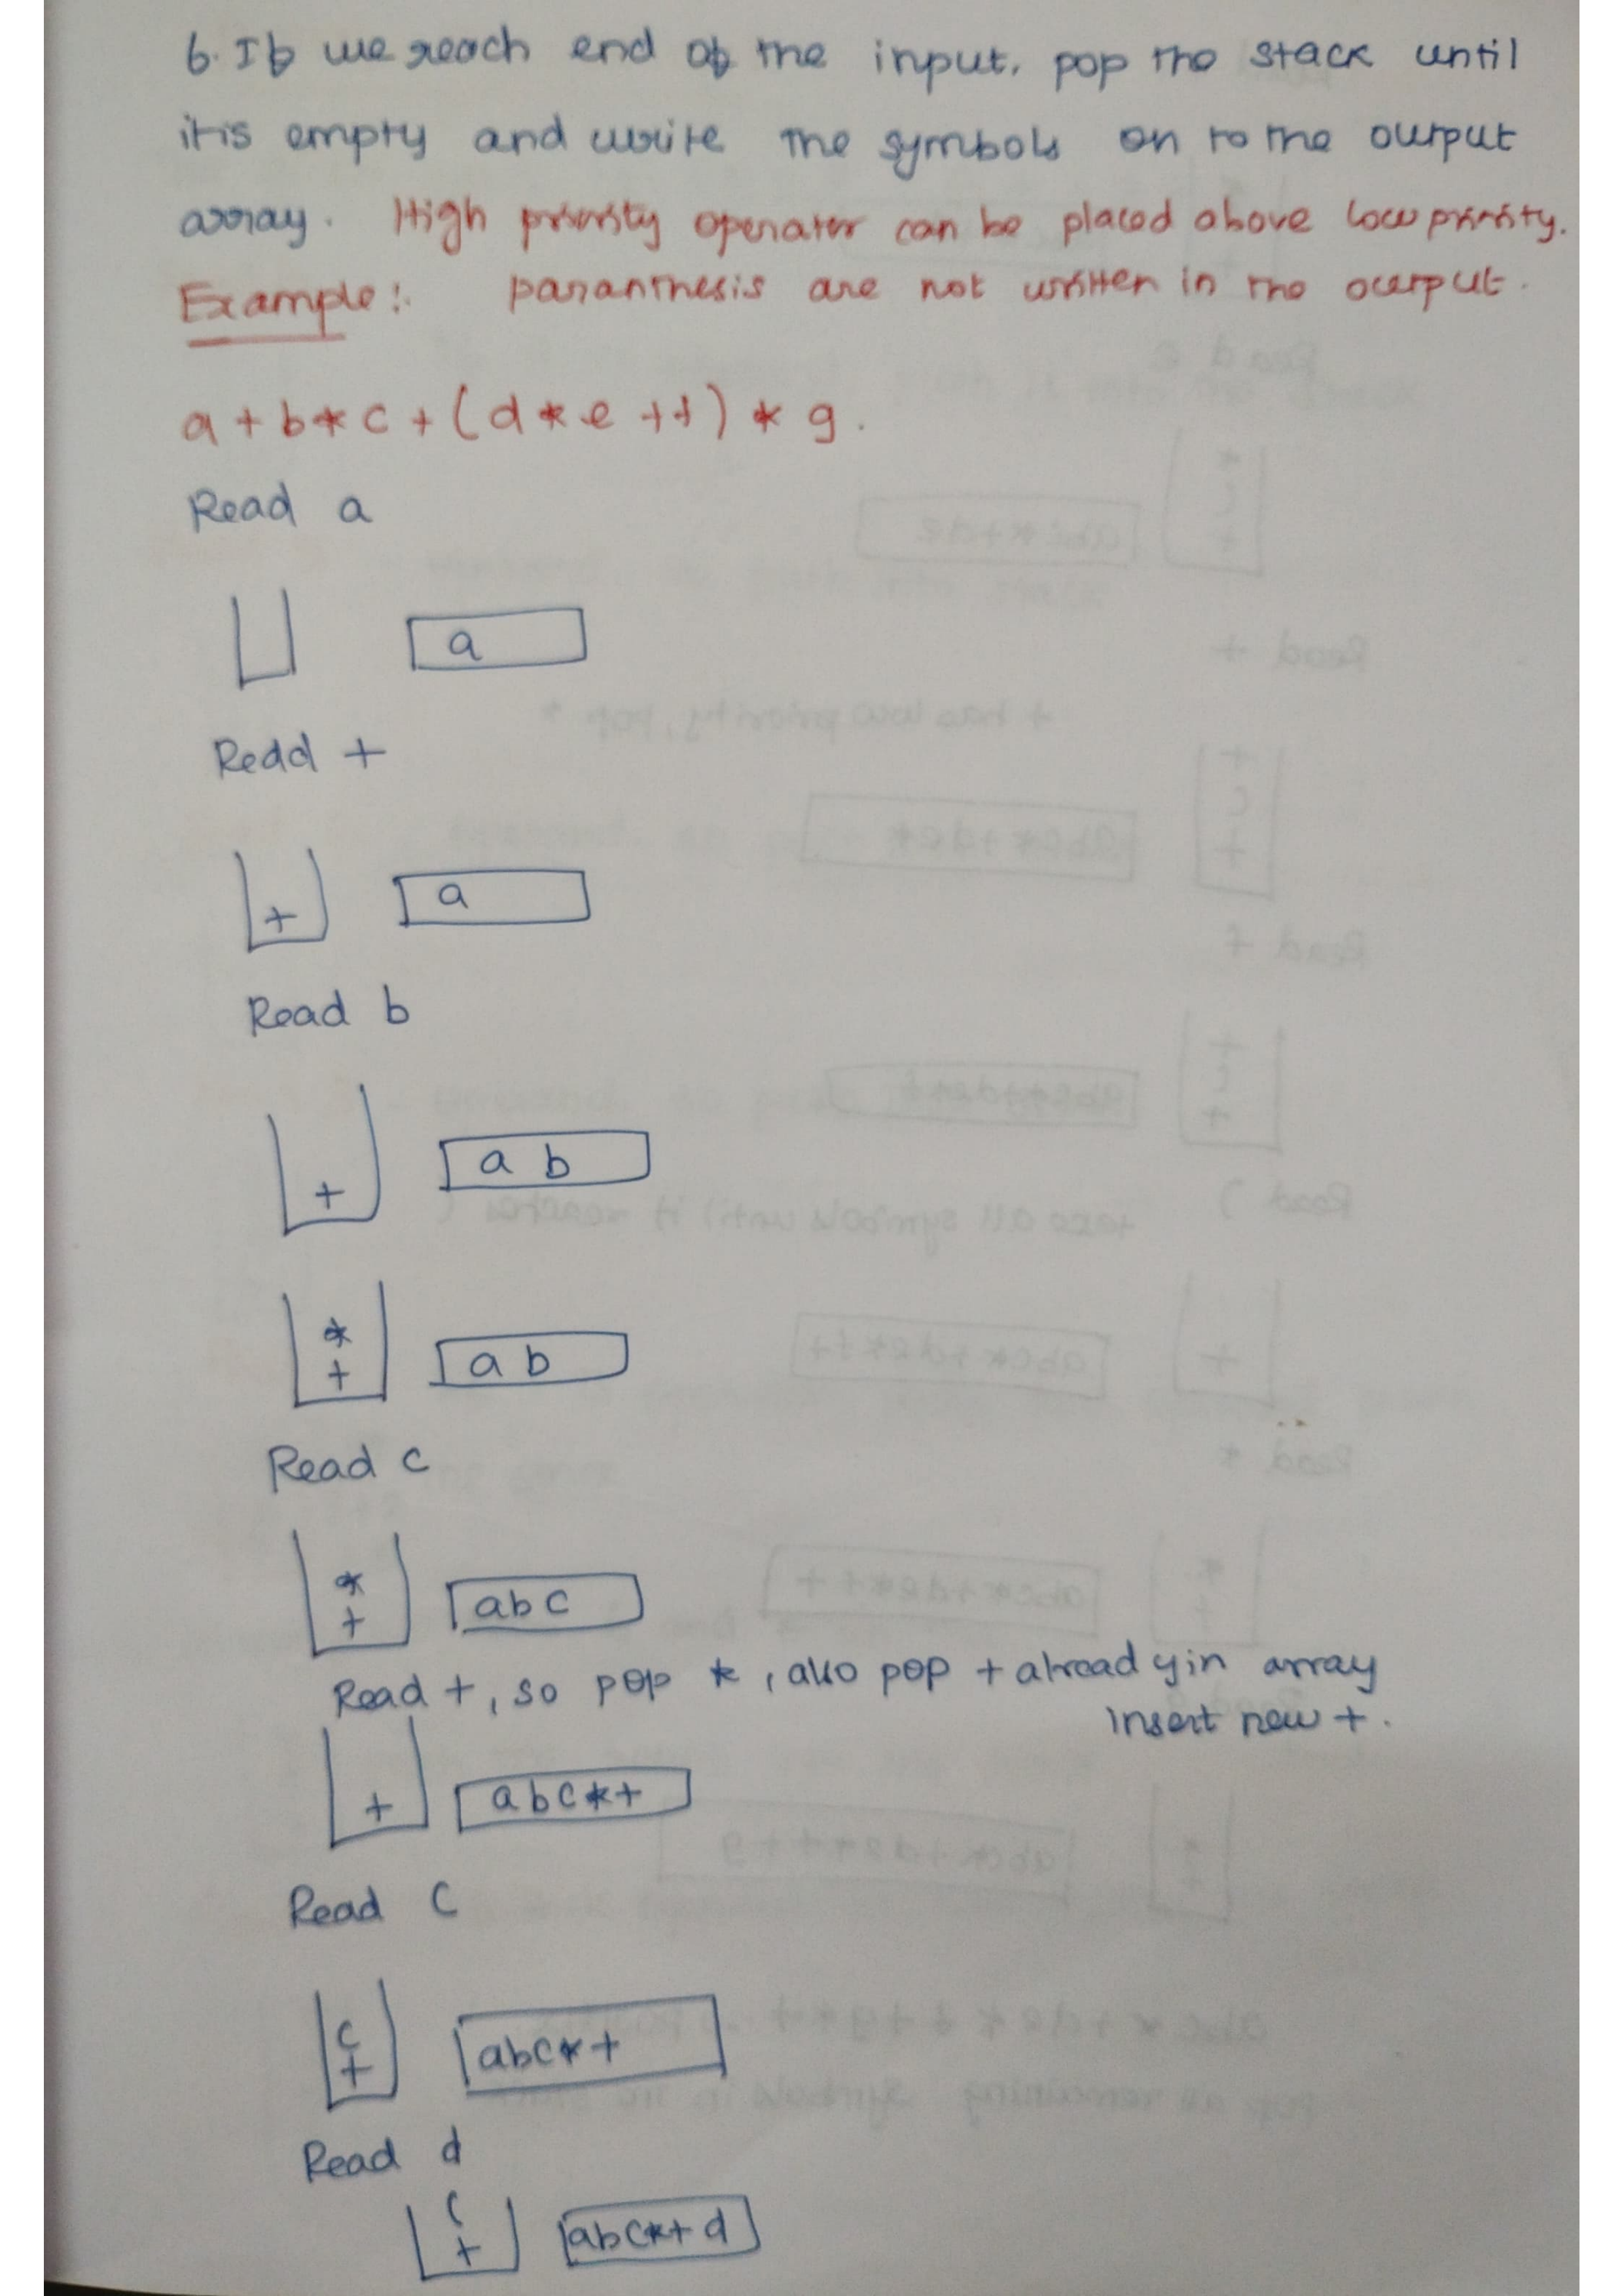 6. If we reach end of the input, pop the stack until
it is empty and write the symbols on to the output
array. High priority operator can be placed above low priority.
Example:. paranthesis are not written in the output.
a + b * c + ( d * e + f ) * g .
Read a
a
Redd +
+ a
Read b
+ a b
*
+ a b
Read c
*
+ a b c
Read +, so pop *, also pop + already in array
insert new + .
+ a b c * +
Read (
(
+ a b c * +
Read d
(
+ a b c * + d